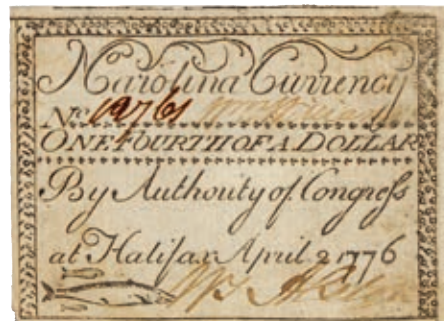 N Carolina Currency
No 12761
ONE FOURTH OF A DOLLAR
By Authority of Congress
at Halifax April 2 1776